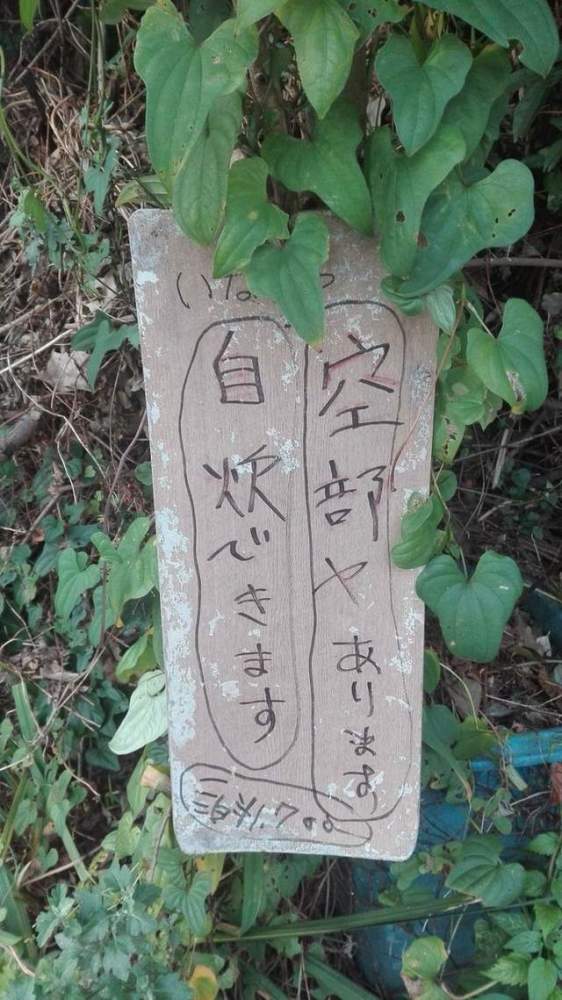 いな
空部ヤあります
自炊できます